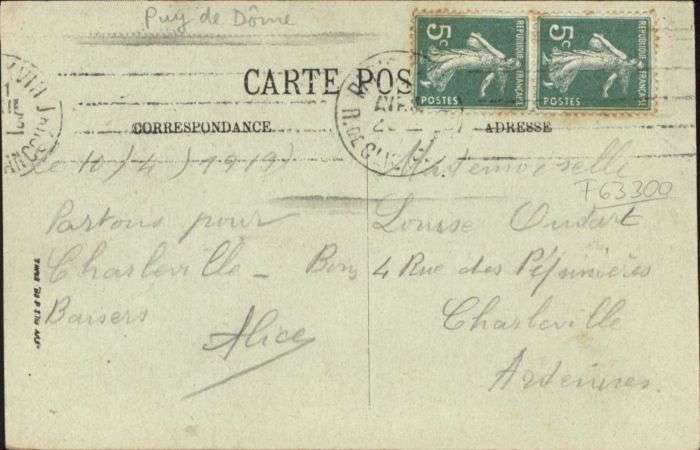 Puy de Dôme
5c
POSTES
REPUBLIQUE FRANÇAISE
5c
POSTES
REPUBLIQUE FRANÇAISE
CARTE POS
CORRESPONDANCE
ADRESSE
XVIII
le 10/4/1919
Partons pour
Charleville - Bons
Baisers
Alice
Mademoiselle
T63300
Louise Oudart
4 Rue des Pépinières
Charleville
Ardennes.